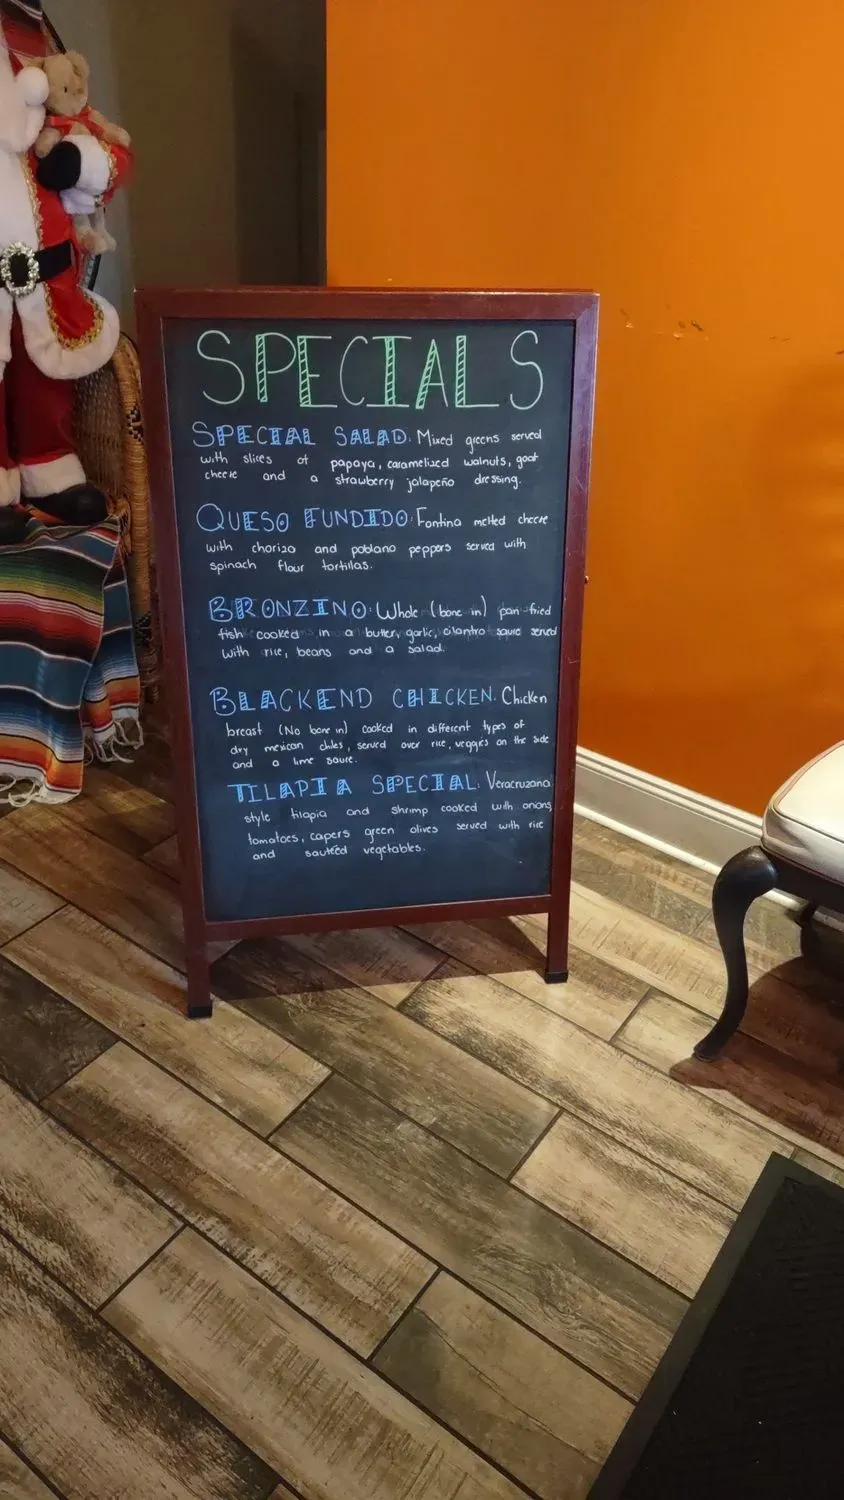 SPECIALS
SPECIAL SALAD: Mixed greens served
with slices of papaya, caramelized walnuts, goat
cheese and a strawberry jalapeño dressing.
QUESO FUNDIDO: Fontina melted cheese
with chorizo and poblano peppers served with
spinach flour tortillas.
BRONZINO: Whole (bone in) pan fried
fish cooked in a butter, garlic, cilantro sauce served
with rice, beans and a salad.
BLACKEND CHICKEN: Chicken
breast (No bone in) cooked in different types of
dry mexican chiles, served over rice, veggies on the side
and a lime sauce.
TILAPIA SPECIAL: Veracruzana
style tilapia and shrimp cooked with onions,
tomatoes, capers green olives served with rice
and sautéed vegetables.